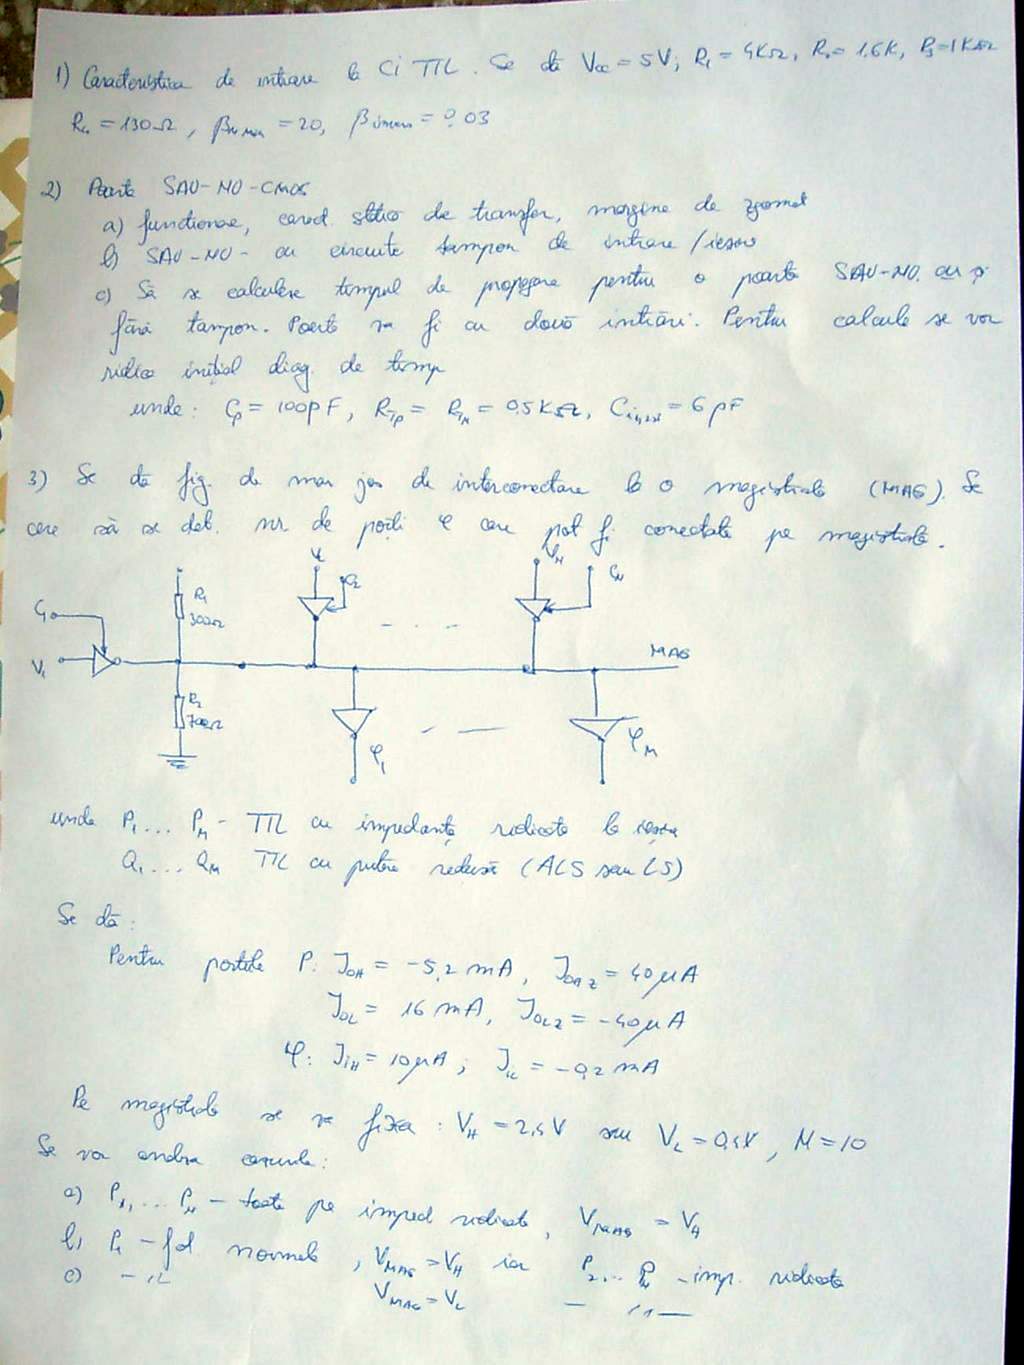 1) Caracteristica de intrare la CI TTL. Se dă Vcc = 5V; R1 = 4KΩ, R2 = 1.6K, R3 = 1KΩ
R4 = 130Ω, βN max = 20, βi max = 0.03
2) Poarta SAU-NU-CMOS
a) functionare, caract. statica de transfer, margine de zgomot
b) SAU-NU- cu circuite tampon de intrare / iesire
c) Să se calculeze timpul de propagare pentru o poartă SAU-NU. cu și
fără tampon. Poarta va fi cu două intrări. Pentru calcule se vor
ridica inițial diag. de timp
unde: Cp = 100pF, RTp = RTN = 0.5KΩ, Cin = 6pF
3) Se dă fig. de mai jos de interconectare la o magistrala (MAG). Se
cere să se det. nr de porți φ care pot fi conectate pe magistrală.
V2 VN
R1 C2 CN
C1 300Ω
V1 MAG
R2
700Ω
φ1 φM
unde P1 ... PM - TTL cu impedanță ridicata la iesire
Q1 ... QM TTL cu putere redusă (ALS sau LS)
Se dă:
Pentru portile P: IOH = -5,2 mA, IOHZ = 40μA
IOL = 16 mA, IOLZ = -40μA
φ: IiH = 10μA; IiL = -0,2 mA
Pe magistrală se va fixa: VH = 2,4V sau VL = 0,4V, N = 10
Se vor analiza cazurile:
a) P1, ... PN - toate pe imped ridicata, VMAG = VH
b) P1 - fol normala, VMAG = VH iar P2, ... PN - imp. ridicata
c) - 11 VMAG = VL - 11 -